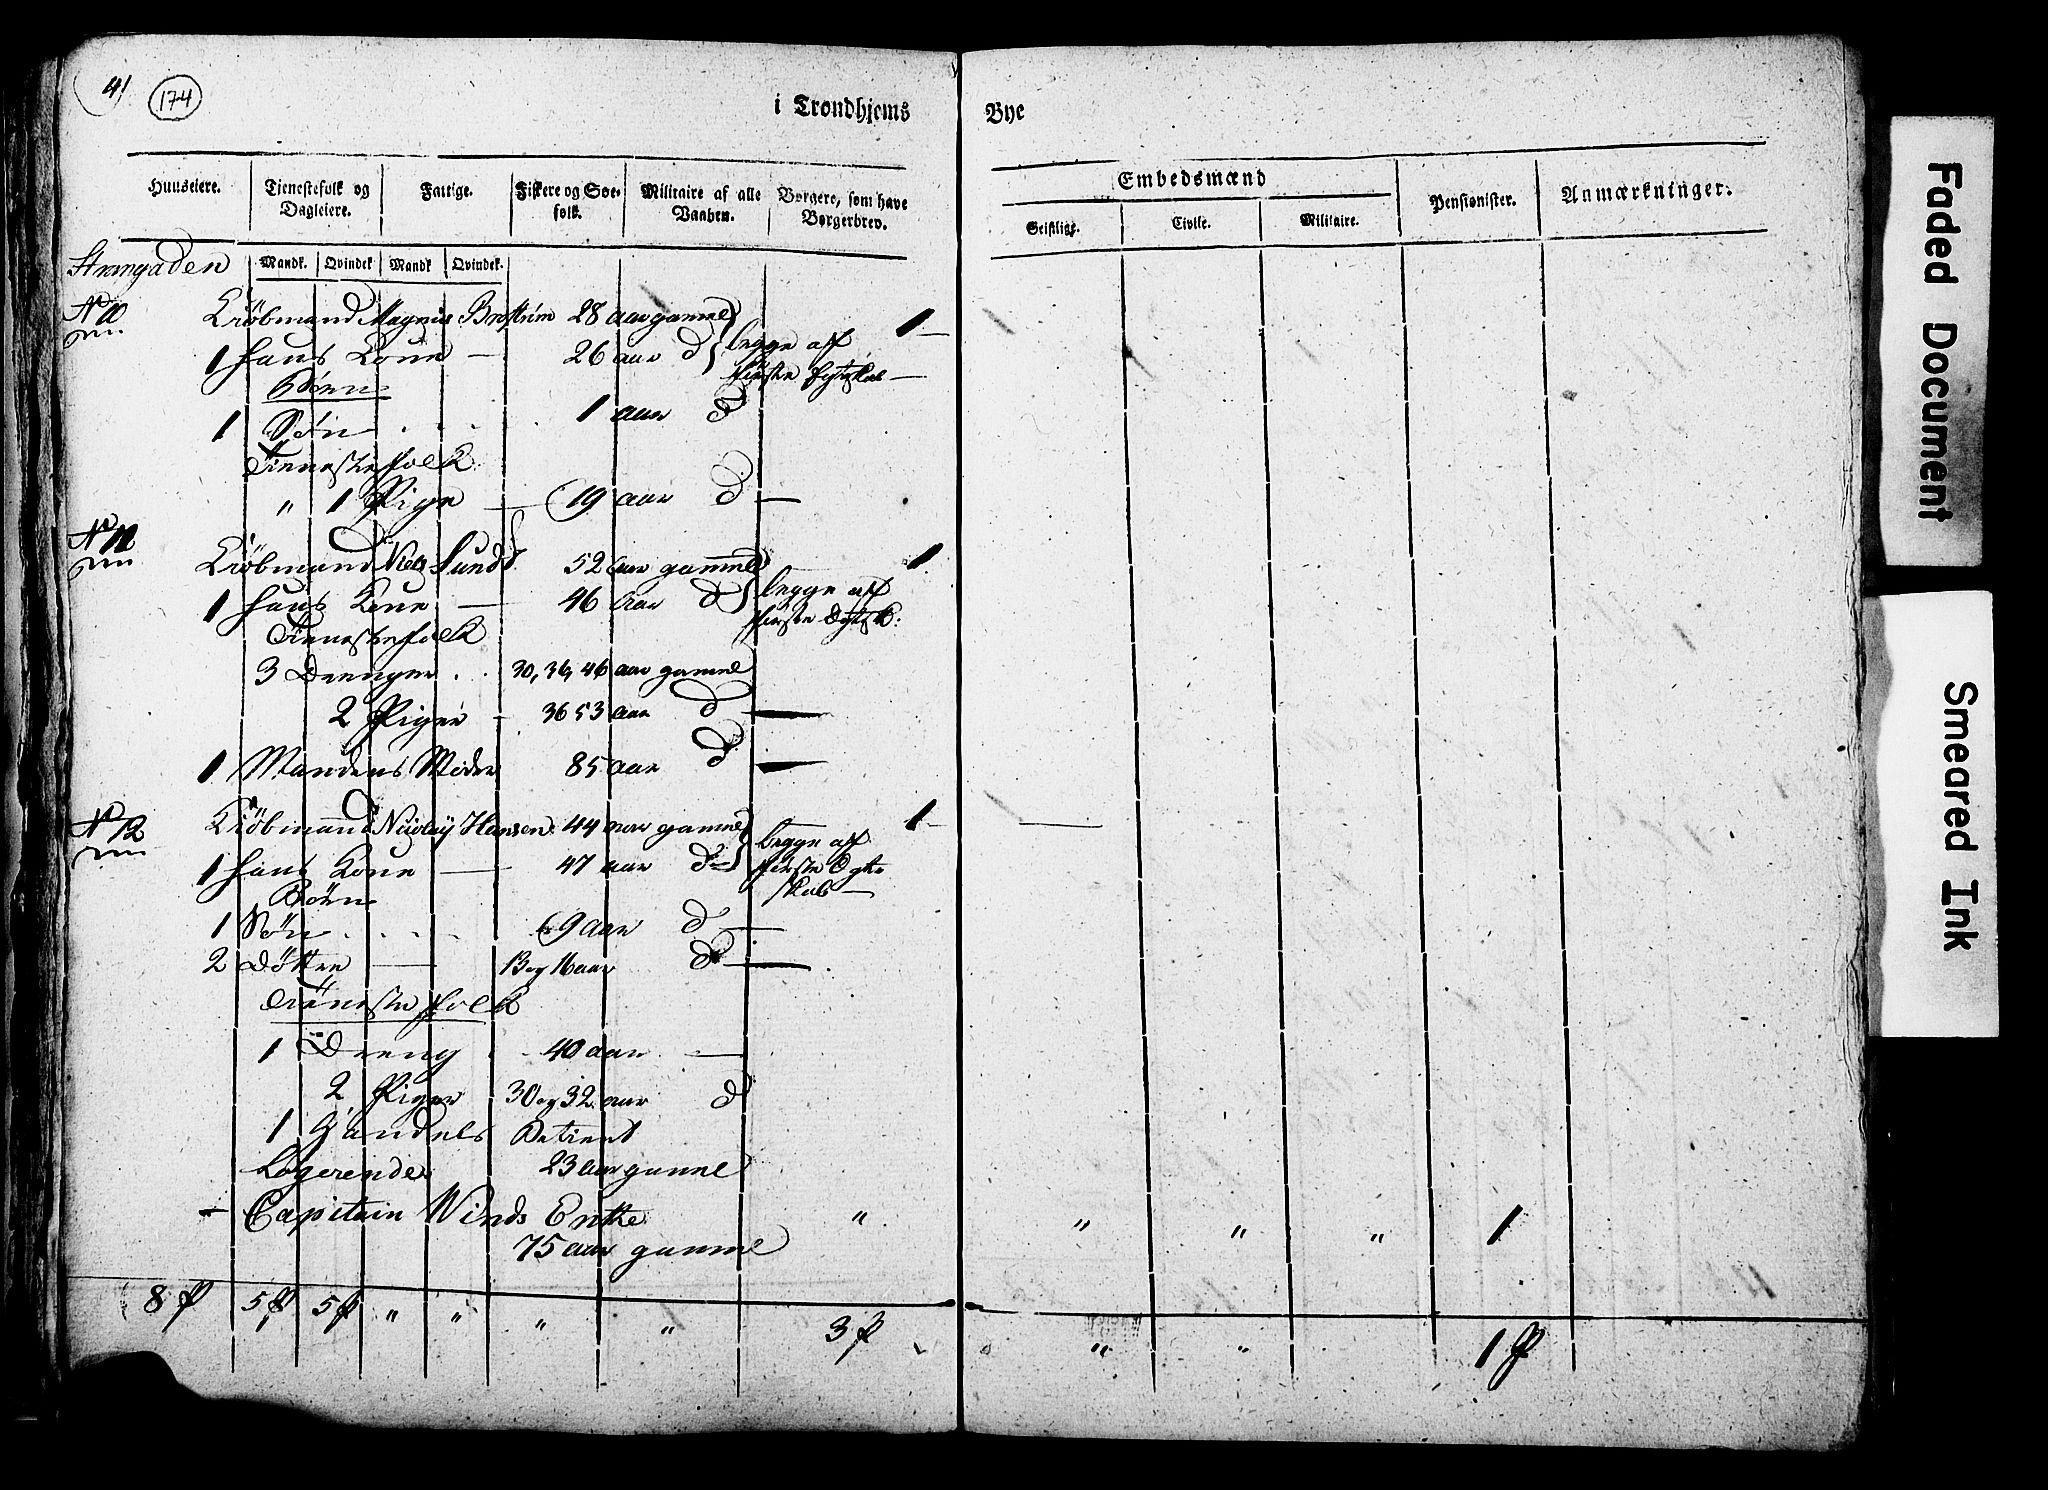 41
174
i Trondhjems Bye
Huuseiere.
Tienestefolk og Dagleiere.
Fattige.
Fiskere og Søefolk.
Militaire af alle Vaaben.
Borgere, som have Borgerbrev.
Embedsmænd
Geistlige.
Civile.
Militaire.
Pensionister.
Anmærkninger.
Mandk. Qvindek Mandk Qvindek.
Strangaden
N 10 Kiöbmand Magnus Broström 28 aar gamel 1
1 hans Kone 26 aar d begge aff
Börn første Egtskab
1 Sön 1 aar d
Tienestefolk
" 1 Pige 19 aar d
N 11
Kiöbmand Niels Lund 52 aar gammel 1
1 hans Kone 46 aar d begge aff
Tienestefolk første Egtsk:
3 Drenger 30, 36, 46 aar gamel
2 Piger 36 53 aar d
1 Mandens Moder 85 aar d
N 12 Kiöbmand Nicolay Hansen 44 aar gamel 1
1 hans Kone 47 aar d begge aff
Börn første Egteskab
1 Sön 9 aar d
2 Döttre 13 og 16 aar d
Tienestefolk
1 Dreng 40 aar
2 Piger 30 og 32 aar d
1 Handels Betient
Logerende 23 aar gamel
Capitain Winds Enke " " " " 1
75 aar gamel
8 5 5 " " " " 3 " " 1
Faded Document
Smeared Ink